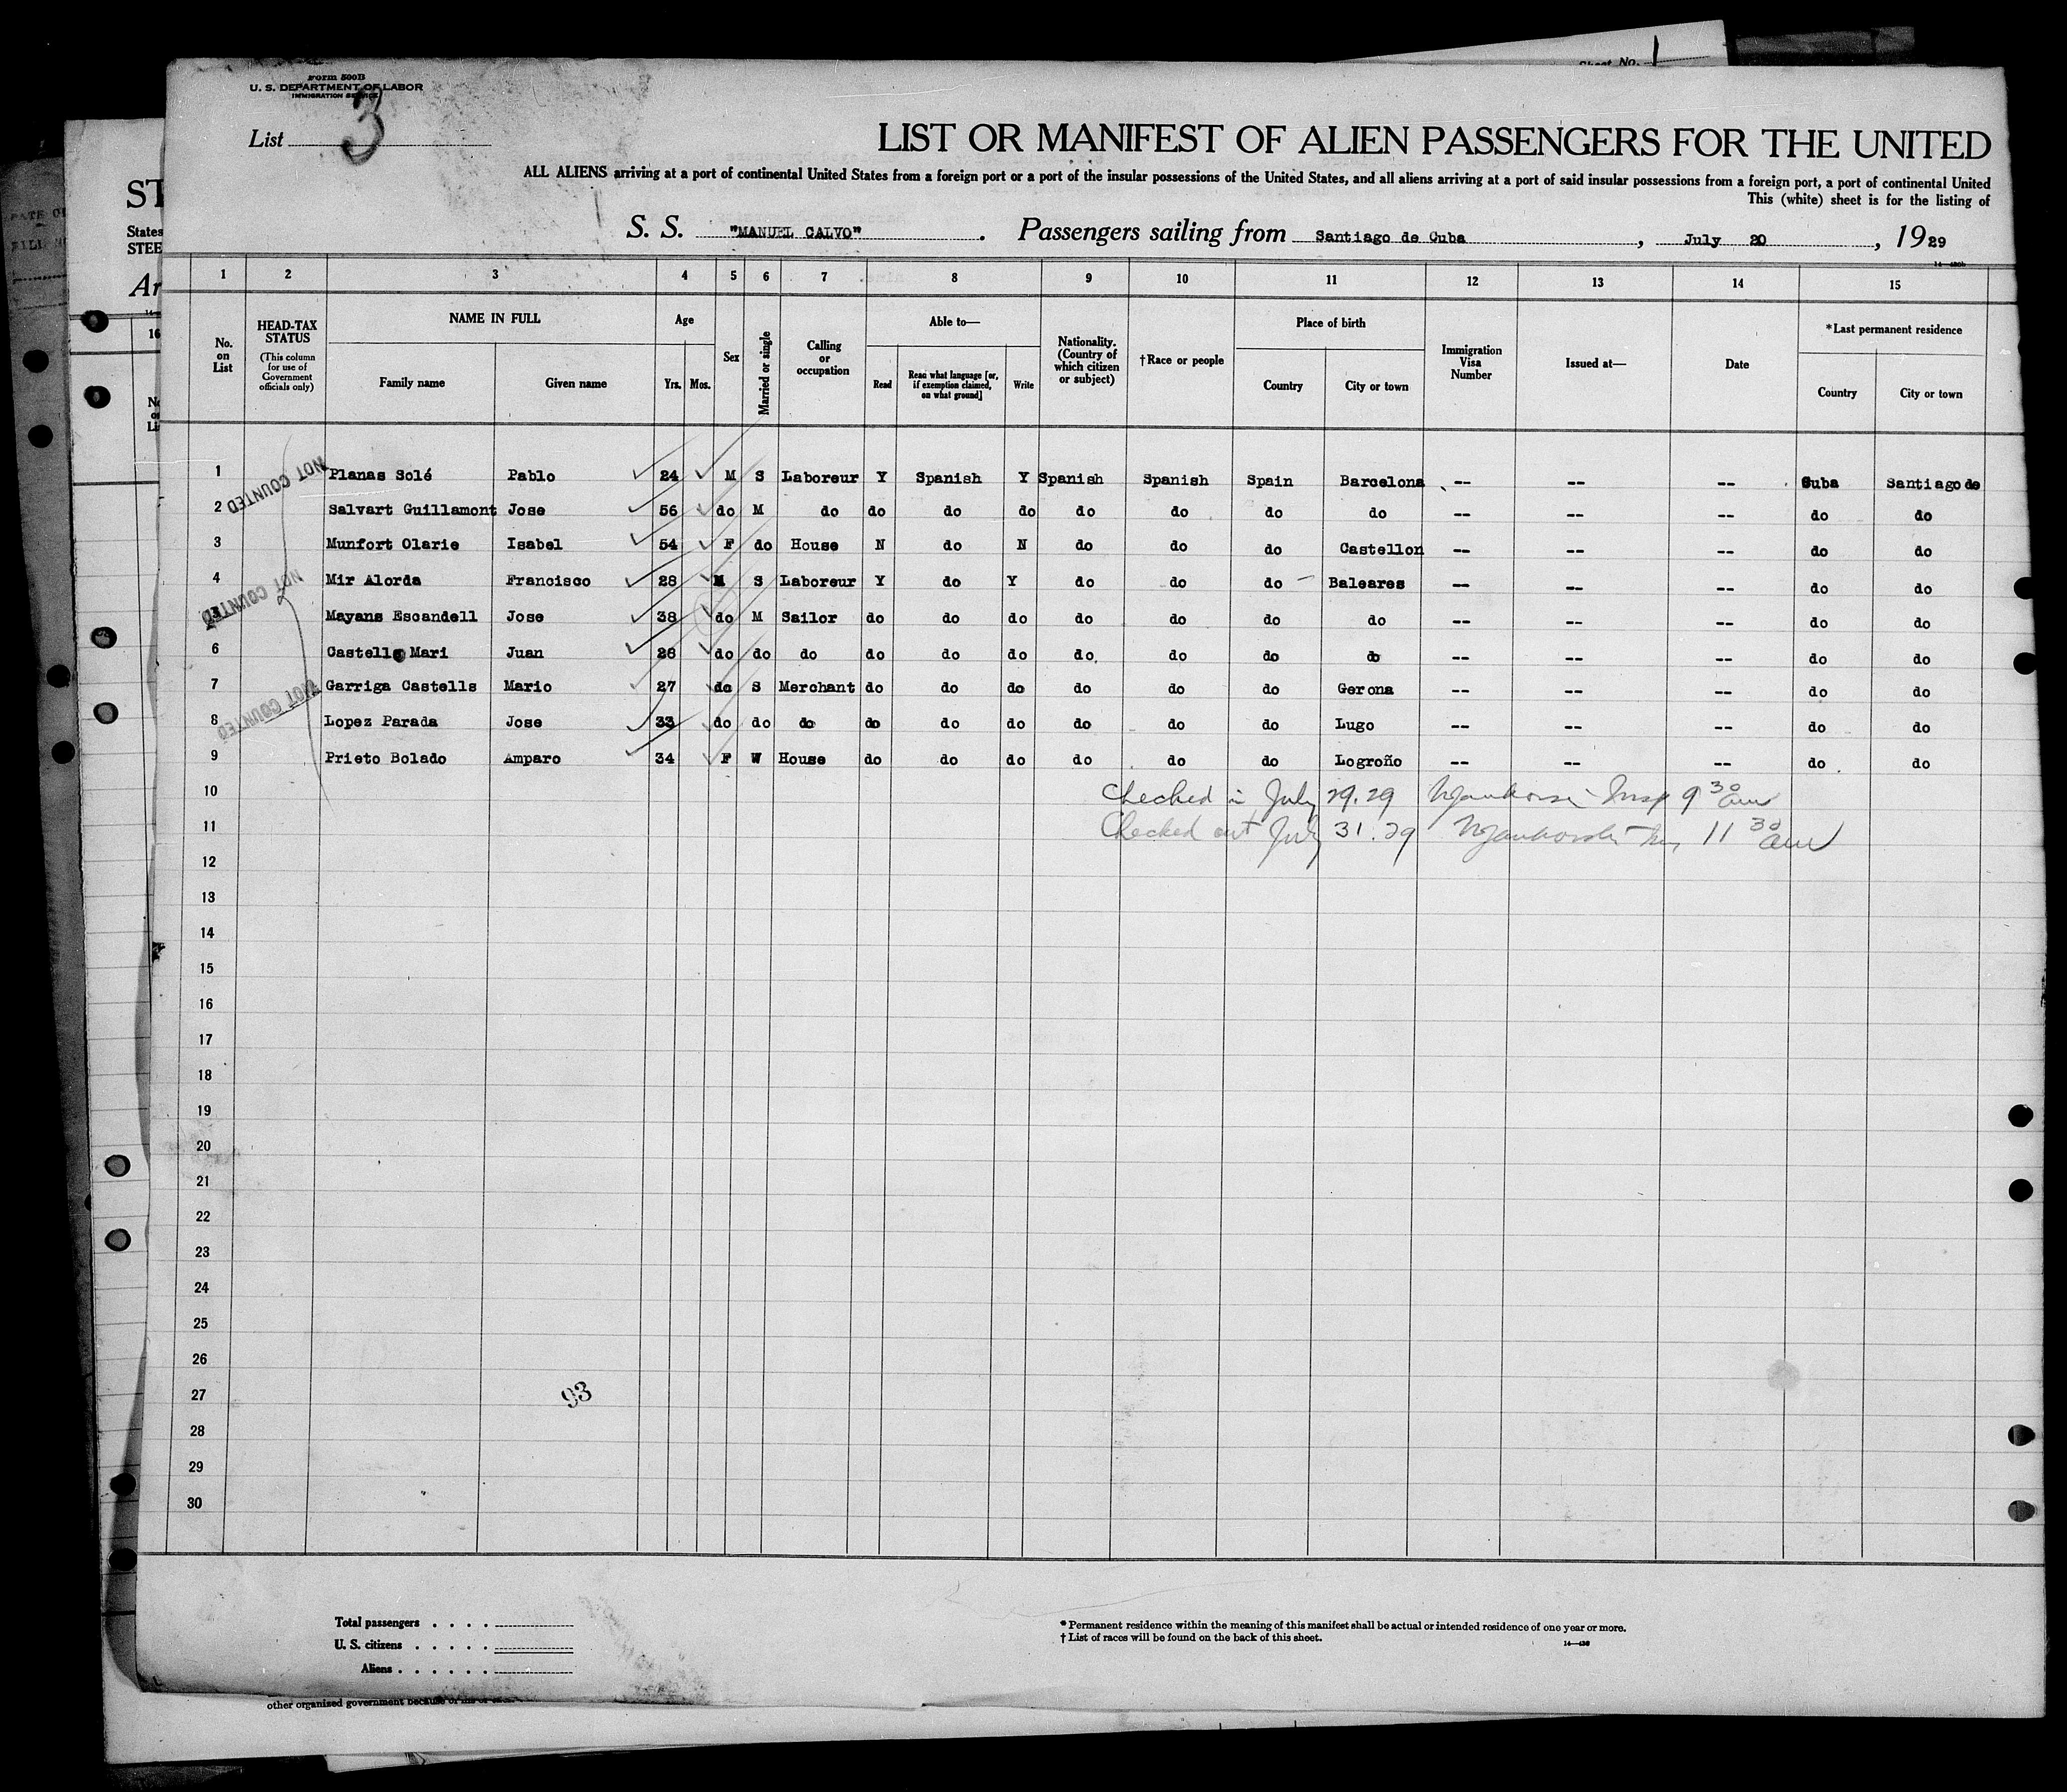 Sheet No. 1
Form 500B
U. S. DEPARTMENT OF LABOR
IMMIGRATION SERVICE
List 3
LIST OR MANIFEST OF ALIEN PASSENGERS FOR THE UNITED
ALL ALIENS arriving at a port of continental United States from a foreign port or a port of the insular possessions of the United States, and all aliens arriving at a port of said insular possessions from a foreign port, a port of continental United
This (white) sheet is for the listing of
S. S. "MANUEL CALVO". Passengers sailing from Santiago de Cuba, July 20, 1929
ST
States
STEE
Ar
16
1 2 3 4 5 6 7 8 9 10 11 12 13 14 15
No. on List
HEAD-TAX STATUS
(This column for use of Government officials only)
NAME IN FULL
Family name Given name
Age
Yrs. Mos.
Sex
Married or single
Calling or occupation
Able to—
Read
Read what language [or, if exemption claimed, on what ground]
Write
Nationality. (Country of which citizen or subject)
†Race or people
Place of birth
Country City or town
Immigration Visa Number
Issued at—
Date
*Last permanent residence
Country City or town
NOT COUNTED
1 Planas Solé Pablo 24 M S Laboreur Y Spanish Y Spanish Spanish Spain Barcelona -- -- -- Cuba Santiago de
2 Salvart Guillamont Jose 56 do M do do do do do do do do -- -- -- do do
3 Munfort Olarie Isabel 54 F do House N do N do do do Castellon -- -- -- do do
NOT COUNTED
4 Mir Alorda Francisco 28 M S Laboreur Y do Y do do do Baleares -- -- -- do do
Mayans Escandell Jose 38 do M Sailor do do do do do do do -- -- -- do do
6 Castello Mari Juan 26 do do do do do do do do do do -- -- -- do do
NOT COUNTED
7 Garriga Castells Mario 27 do S Merchant do do do do do do Gerona -- -- -- do do
8 Lopez Parada Jose 33 do do do do do do do do do Lugo -- -- -- do do
9 Prieto Bolado Amparo 34 F W House do do do do do do Logroño -- -- -- do do
10 Checked in July 29.29 Insp 9 30 am
11 Checked out July 31.29 11 30 am
12
13
14
15
16
17
18
19
20
21
22
23
24
25
26
27
93
28
29
30
Total passengers . . . .
U. S. citizens . . . . .
Aliens . . . . . .
* Permanent residence within the meaning of this manifest shall be actual or intended residence of one year or more.
† List of races will be found on the back of this sheet.
other organized government because of